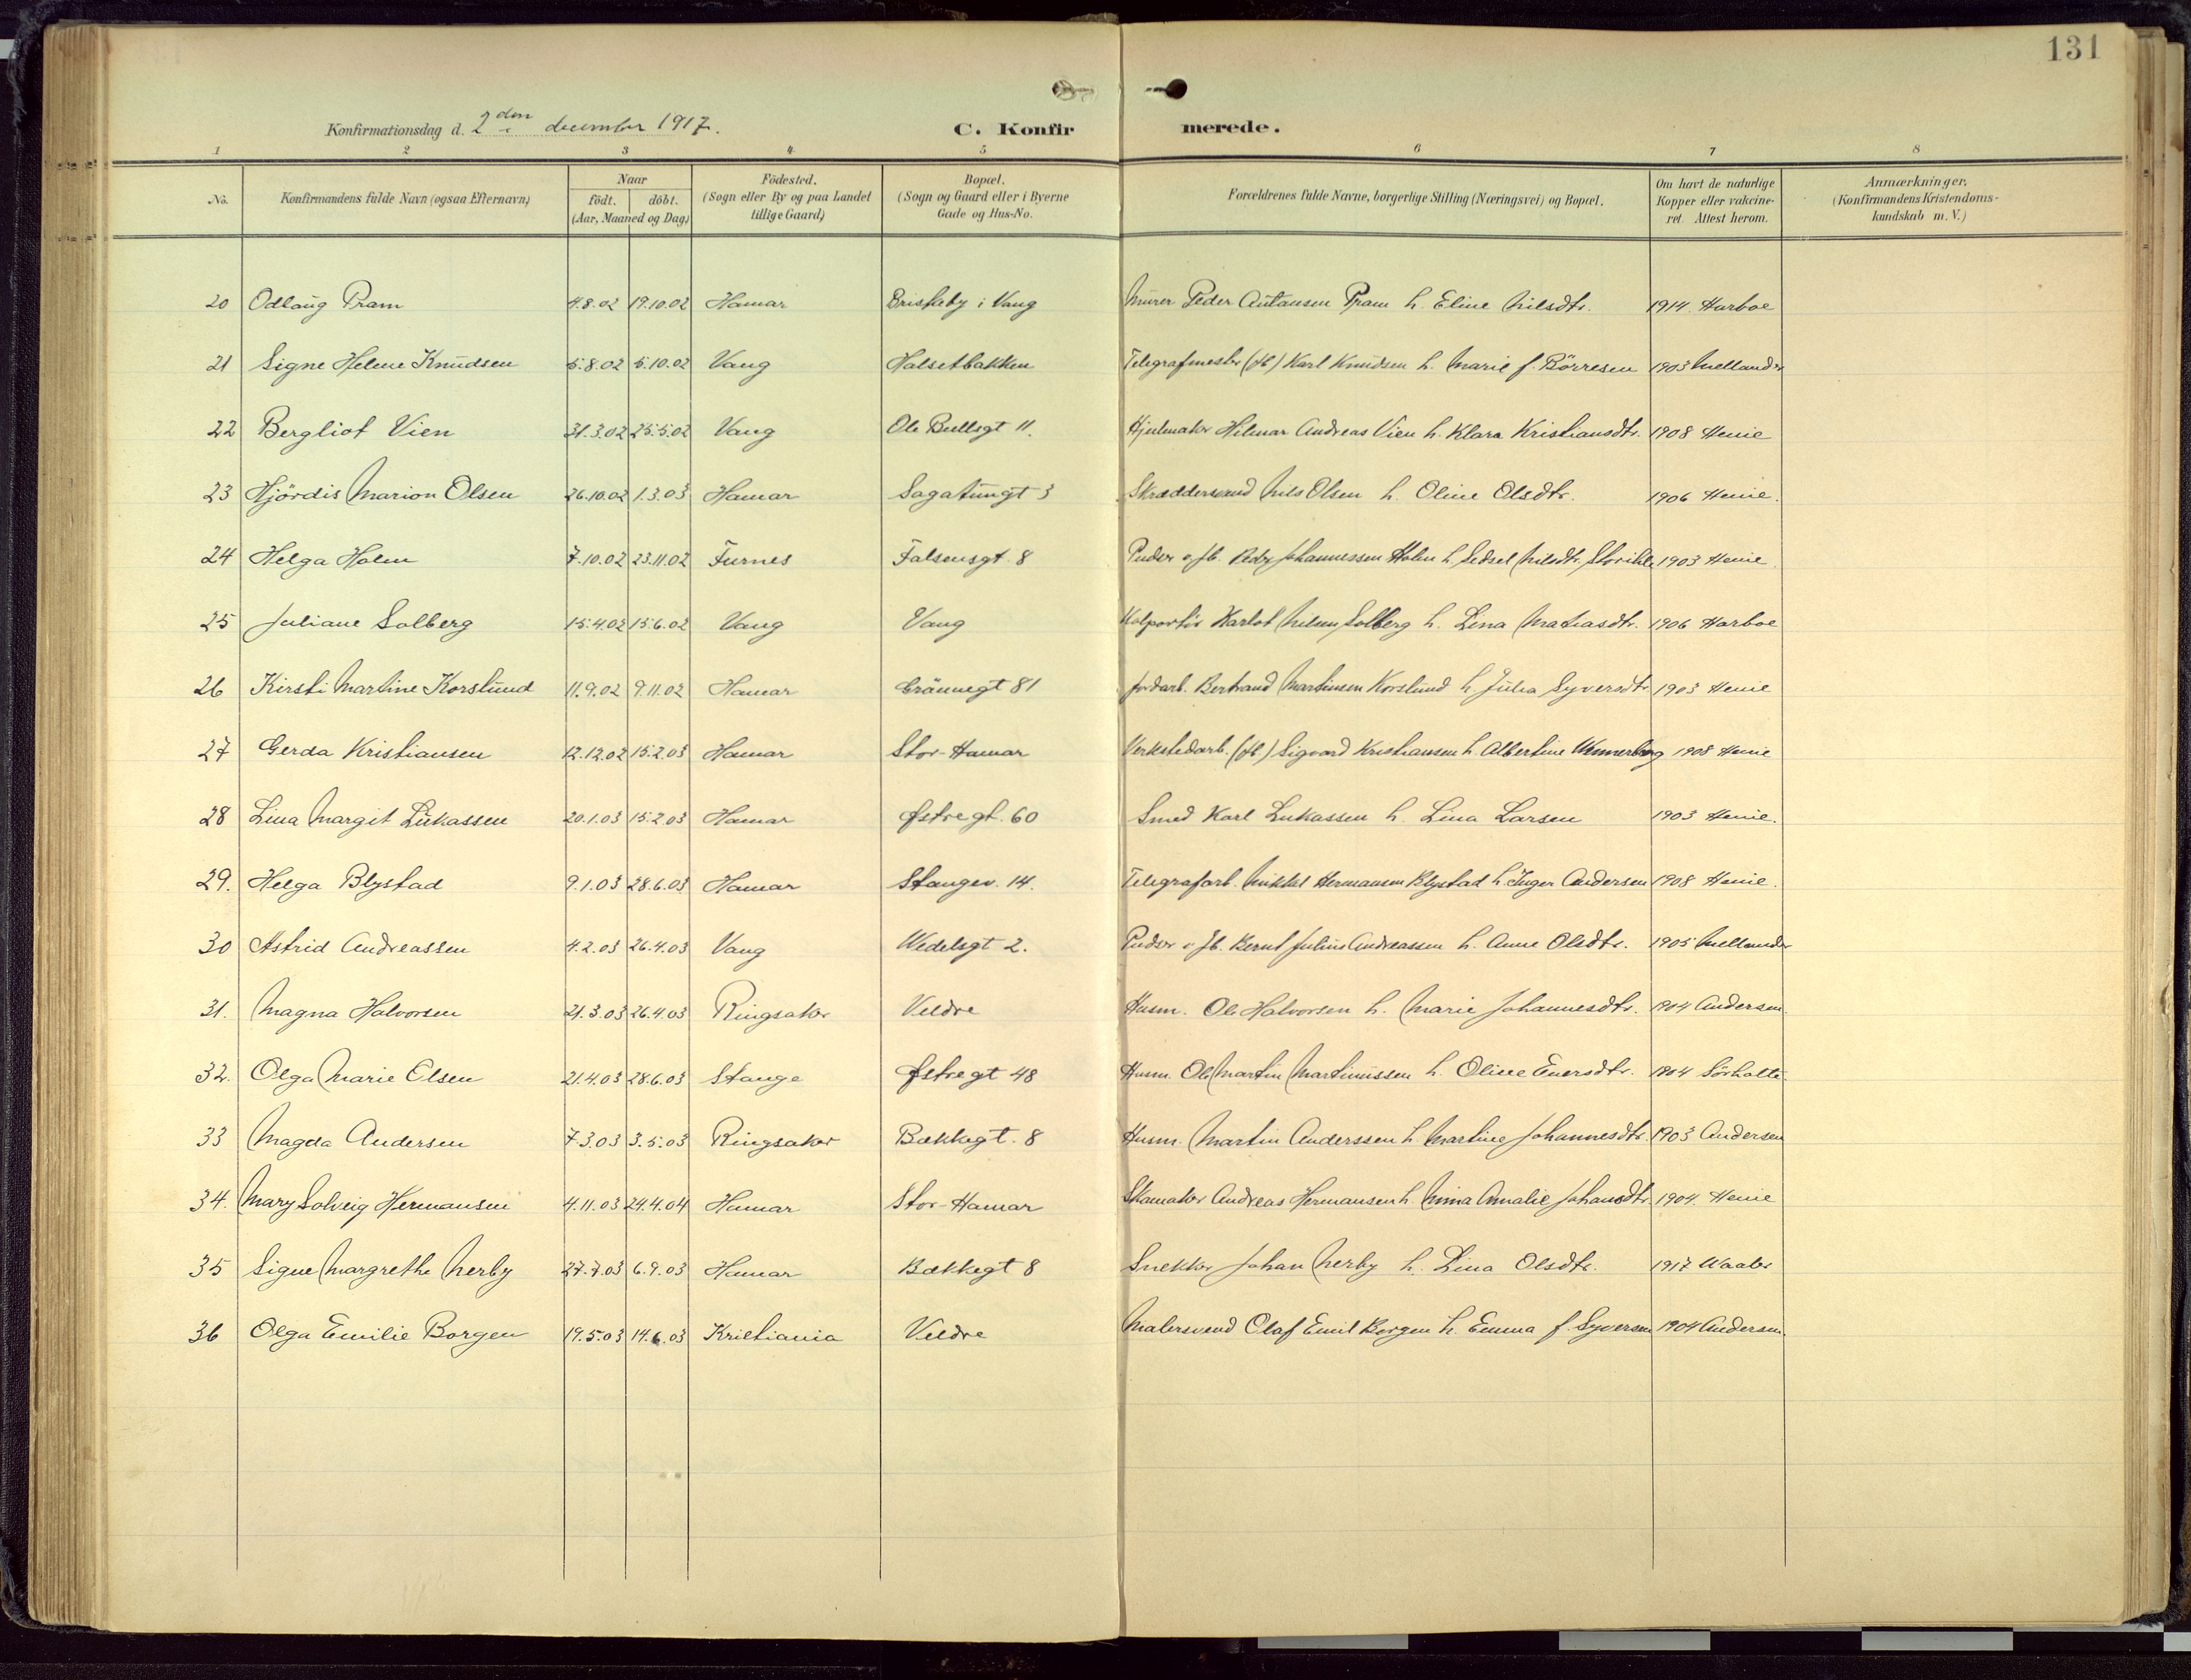 131
Konfirmationsdag d. 2den december 1917.
C. Konfirmerede.
1 2 3 4 5 6 7 8
No. Konfirmandens fulde Navn (ogsaa Efternavn) Naar födt. döbt. (Aar, Maaned og Dag) Födested. (Sogn eller By og paa Landet tillige Gaard) Bopæl. (Sogn og Gaard eller i Byerne Gade og Hus-No. Forældrenes fulde Navne, borgerlige Stilling (Næringsvei) og Bopæl. Om havt de naturlige Kopper eller vakcineret. Attest herom. Anmærkninger. (Konfirmandens Kristendomskundskab m. V.)
20 Odlaug Pram 4.8.02 19.10.02 Hamar Briskeby i Vang Murer Peder Pram h. Eline Nilsdtr. 1914 Harboe
21 Signe Helene Knudsen 5.8.02 5.10.02 Vang Halsetbakken Telegrafmester (fb) Karl Knudsen h. Marie f. Börresen 1903 Mellander
22 Bergliot Vien 31.3.02 25.5.02 Vang Ole Bullsgt 11. Hjulmaker Hilmar Andreas Vien h. Klara Kristiansdtr. 1908 Henie
23 Hjördis Marion Olsen 26.10.02 1.3.03 Hamar Sagatungt 3 Skræddersvend Nils Olsen h. Oline Olsdtr. 1906 Henie.
24 Helga Holm 7.10.02 23.11.02 Furnes Falsensgt. 8 Pudser v. Jb. Peder Johannessen Holm h. Sidsel Nilsdtr. 1903 Henie.
25 Juliane Solberg 15.4.02 15.6.02 Vang Vang Kolportör Karlot Nilsen Solberg h. Lina Matiasdtr. 1906 Harboe
26 Kirsti Martine Korslund 11.9.02 9.11.02 Hamar Grönnegt 81 Jordarb. Bertrand Martinsen Korslund h. Julia Syversdtr. 1903 Henie
27 Gerda Kristiansen 12.12.02 15.2.03 Hamar Stor-Hamar Verkstedarb. (fb) Sigvard Kristiansen h. Albertine Wennerberg 1908 Henie
28 Lina Margit Lukassen 20.1.03 15.2.03 Hamar Østregt. 60 Smed Karl Lukassen h. Lina Larsen 1903 Henie.
29. Helga Blystad 9.1.03 28.6.03 Hamar Stangev. 14. Telegrafarb. Mikkel Hermansen Blystad h. Inger Andersen 1908 Henie.
30 Astrid Andreassen 4.2.03 26.4.03 Vang Wedelsgt 2. Pudser v. Jb. Bernt Julius Andreassen h. Anne Olsdtr. 1905 Mellander
31. Magna Halvorsen 21.3.03 26.4.03 Ringsaker Veldre Husm. Ole Halvorsen h. Marie Johannesdtr. 1904 Andersen.
32. Olga Marie Olsen 21.4.03 28.6.03 Stange Østregt 48 Husm. Ole Martin Martinussen h. Oline Evensdtr. 1904 Sörholte.
33 Magda Andersen 7.3.03 3.5.03 Ringsaker Bækkegt. 8 Husm. Martin Anderssen h. Martine Johannesdtr. 1903 Andersen
34. Mary Solveig Hermansen 4.11.03 24.4.04 Hamar Stor-Hamar Skomaker Andreas Hermansen h. Mina Amalie Johansdtr. 1904. Henie
35 Signe Margrethe Nerby 27.7.03 6.9.03 Hamar Bækkegt 8 Snekker Johan Nerby h. Lina Olsdtr. 1917 Waaler
36 Olga Emilie Borgen 19.5.03 14.6.03 Kristiania Veldre Malersvend Olaf Emil Borgen h. Emma f. Syversen 1904 Andersen.